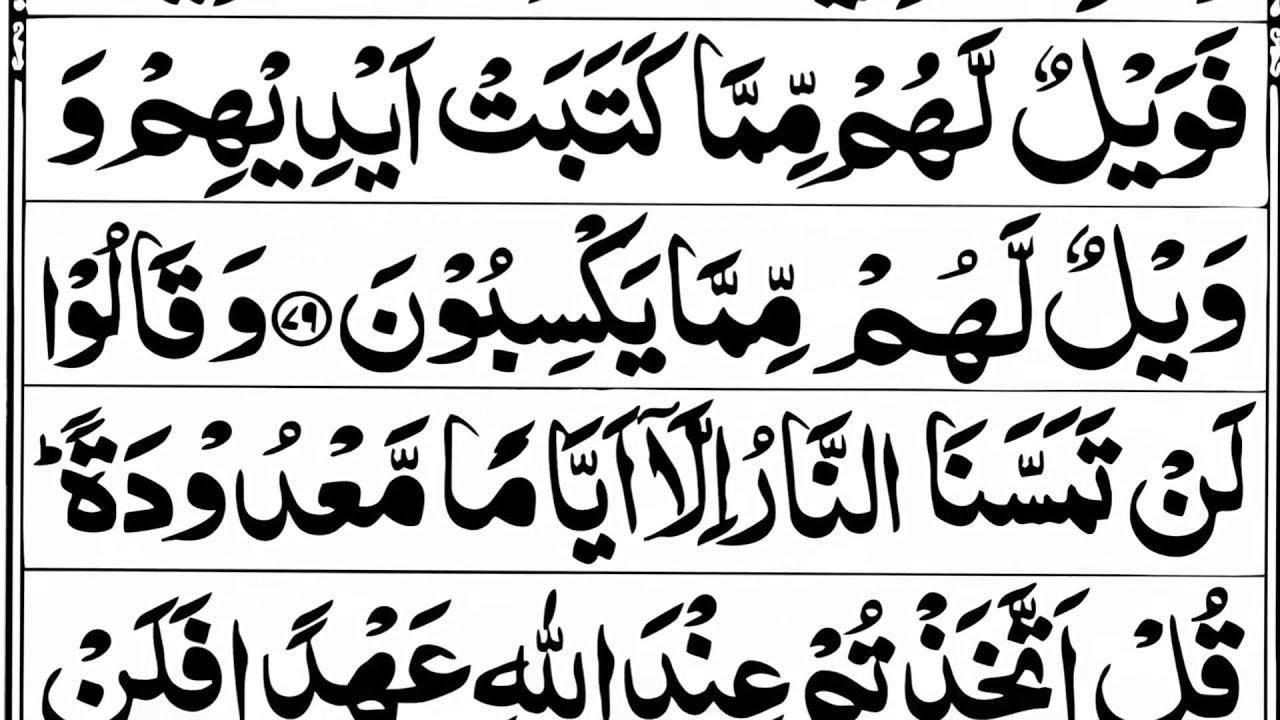 فَوَيْلٌ لَّهُمْ مِّمَّا كَتَبَتْ اَيْدِيْهِمْ وَ
وَيْلٌ لَّهُمْ مِّمَّا يَكْسِبُوْنَ ﴿۷۹﴾ وَ قَالُوْا
لَنْ تَمَسَّنَا النَّارُ اِلَّاۤ اَيَّامًا مَّعْدُوْدَةً ؕ
قُلْ اَتَّخَذْتُمْ عِنْدَ اللّٰهِ عَهْدًا فَلَنْ